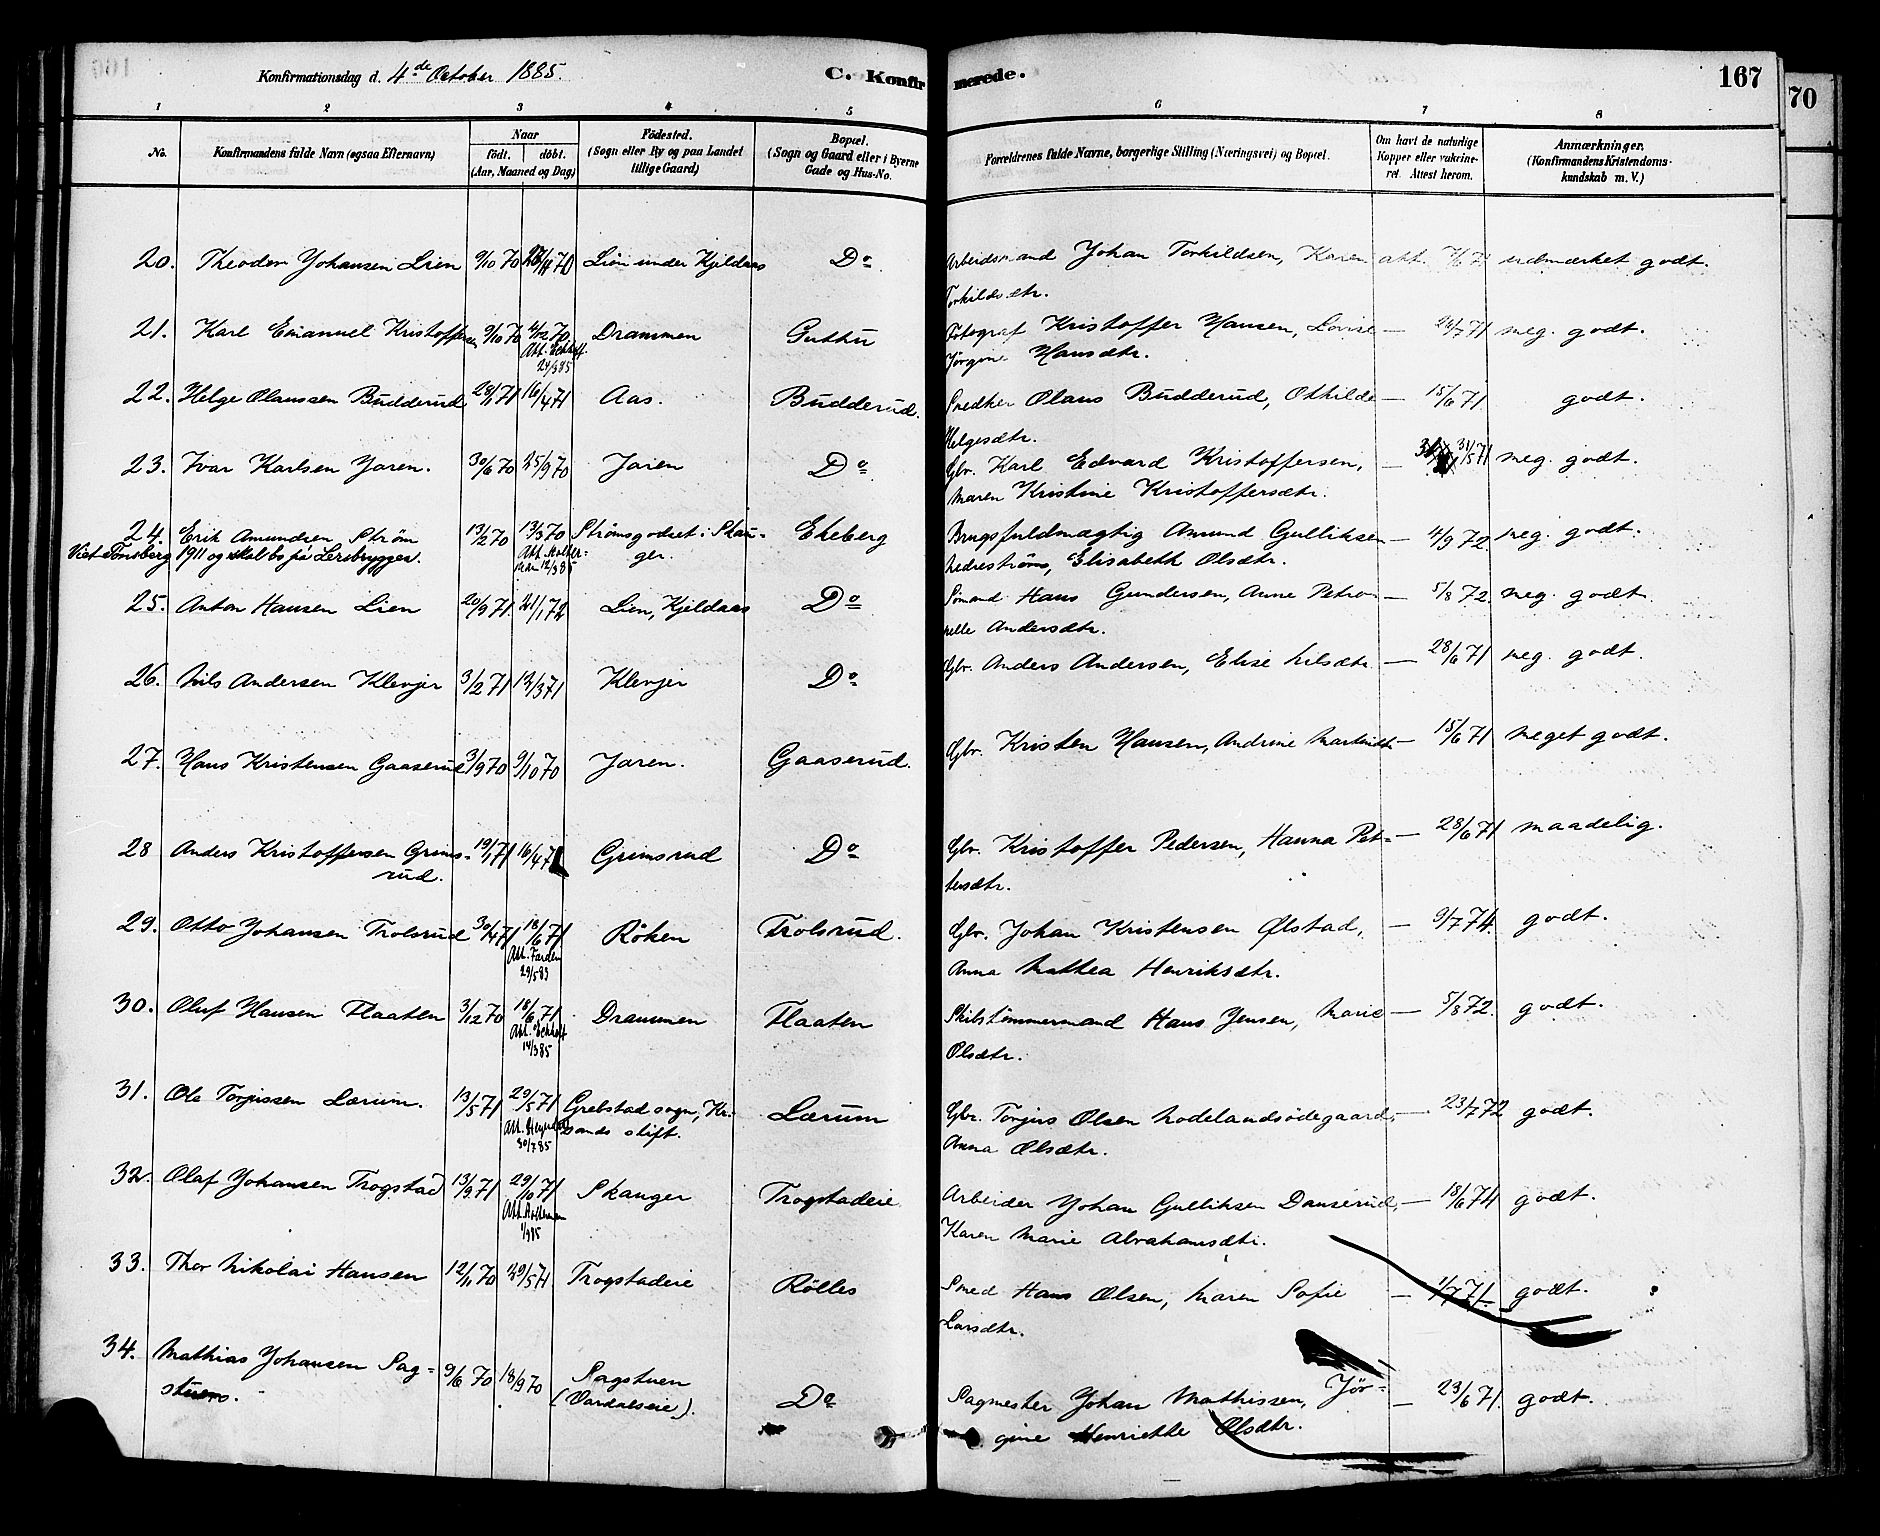 Konfirmationsdag d. 4de October 1885.
C. Konfirmerede.
167
70
1 2 3 4 5 6 7 8
No.
Konfirmandens fulde Navn (ogsaa Efternavn)
Naar
født. døbt.
(Aar, Maaned og Dag)
Födested.
(Sogn eller By og paa Landet
tillige Gaard)
Bopæl.
(Sogn og Gaard eller i Byerne
Gade og Hus-No.
Forældrenes fulde Navne, borgerlige Stilling (Næringsvei) og Bopæl.
Om havt de naturlige
Kopper eller vakcine-
ret. Attest herom.
Anmærkninger.
(Konfirmandens Kristendoms-
kundskab m. V.)
20. Theodor Johansen Lien 9/10 70 Lien under Kjeldaas Do Arbeidsmand Johan Torkildsen, Karen att. 7/6 71 udmærket godt.
Torkildsdtr.
21. Karl Emanuel Kristoffersen 9/10 70 4/12 70 Drammen Guttu Fotograf Kristoffer Hansen, Lovise — 24/7 71 meg. godt.
24/3 85 Jørgine Hansdtr.
22. Helge Olaussen Budderud 28/1 71 16/4 71 Aas. Budderud. Snedker Olaus Budderud, Othilde — 15/6 71 godt.
Helgesdtr.
23. Ivar Karlsen Jaren. 30/6 70 25/9 70 Jaren Do Gbr. Karl Edvard Kristoffersen, — 31/5 71 meg. godt.
Maren Kristine Kristoffersdtr.
24. Erik Amundsen Strøm 13/2 70 13/3 70 Strømsgodset i Skau- Ekeberg Brugsfuldmægtig Amund Gulliksen — 4/9 72. meg. godt.
Viet Tønsberg 1911 og skal bo på Lersbryggen. 12/3 85 ger. Nedreströms, Elisabeth Olsdtr.
25. Anton Hansen Lien 20/9 71. 21/1 72 Lien, Kjeldaas Do Sömand Hans Gundersen, Anne Petro- — 5/8 72. meg. godt.
nelle Andersdtr.
26. Nils Andersen Klevjer 3/2 71 12/3 71 Klevjer Do Gbr. Anders Andersen, Elise Nilsdtr. — 28/6 71 meg. godt.
27. Hans Kristensen Gaaserud 3/9 70 9/10 70 Jaren. Gaaserud. Gbr. Kristen Hansen, Andrine Martinsdtr. — 15/6 71 meget godt.
28 Anders Kristoffersen Grims- 19/1 71 16/4 71 Grimsrud Do Gbr. Kristoffer Pedersen, Hanna Pet- — 28/6 71 maadelig.
rud. tersdtr.
29. Otto Johansen Trolsrud 30/4 71 18/6 71 Röken Trolsrud. Gbr. Johan Kristensen Ølstad, — 9/7 74. godt.
Att. Farden
29/5 83 Anna Mathea Henriksdtr.
30. Oluf Hansen Flaaten 3/12 70 18/6 71 Drammen Flaaten Skibstømmermand Hans Jensen, Marie — 5/8 72. godt.
14/3 85 Olsdtr.
31. Ole Torjussen Lærum. 13/5 71 29/5 71 Grebstad sogn, Kr. Lærum Gbr. Torjus Olsen Nodelandsödegaard, — 23/7 72 godt.
30/7 85 sands stift. Anna Olsdtr.
32. Olaf Johansen Trogstad 13/9 71 29/10 71 Skauger Trogstadeie Arbeider Johan Gulliksen Danserud, — 18/6 74 godt.
1/9 85 Karen Marie Abrahamsdtr.
33. Thor Nikolai Hansen 12/11 70 29/5 71 Trogstadeie Rölles Smed Hans Olsen, Maren Sofie — 1/7 71. godt.
Larsdtr.
34. Mathias Johansen Sag- 9/6 70 18/9 70 Sagstuen Do Sagmester Johan Mathissen, Jör- — 23/6 71. godt.
stuens. (Vardalseie). gine Henriette Olsdtr.